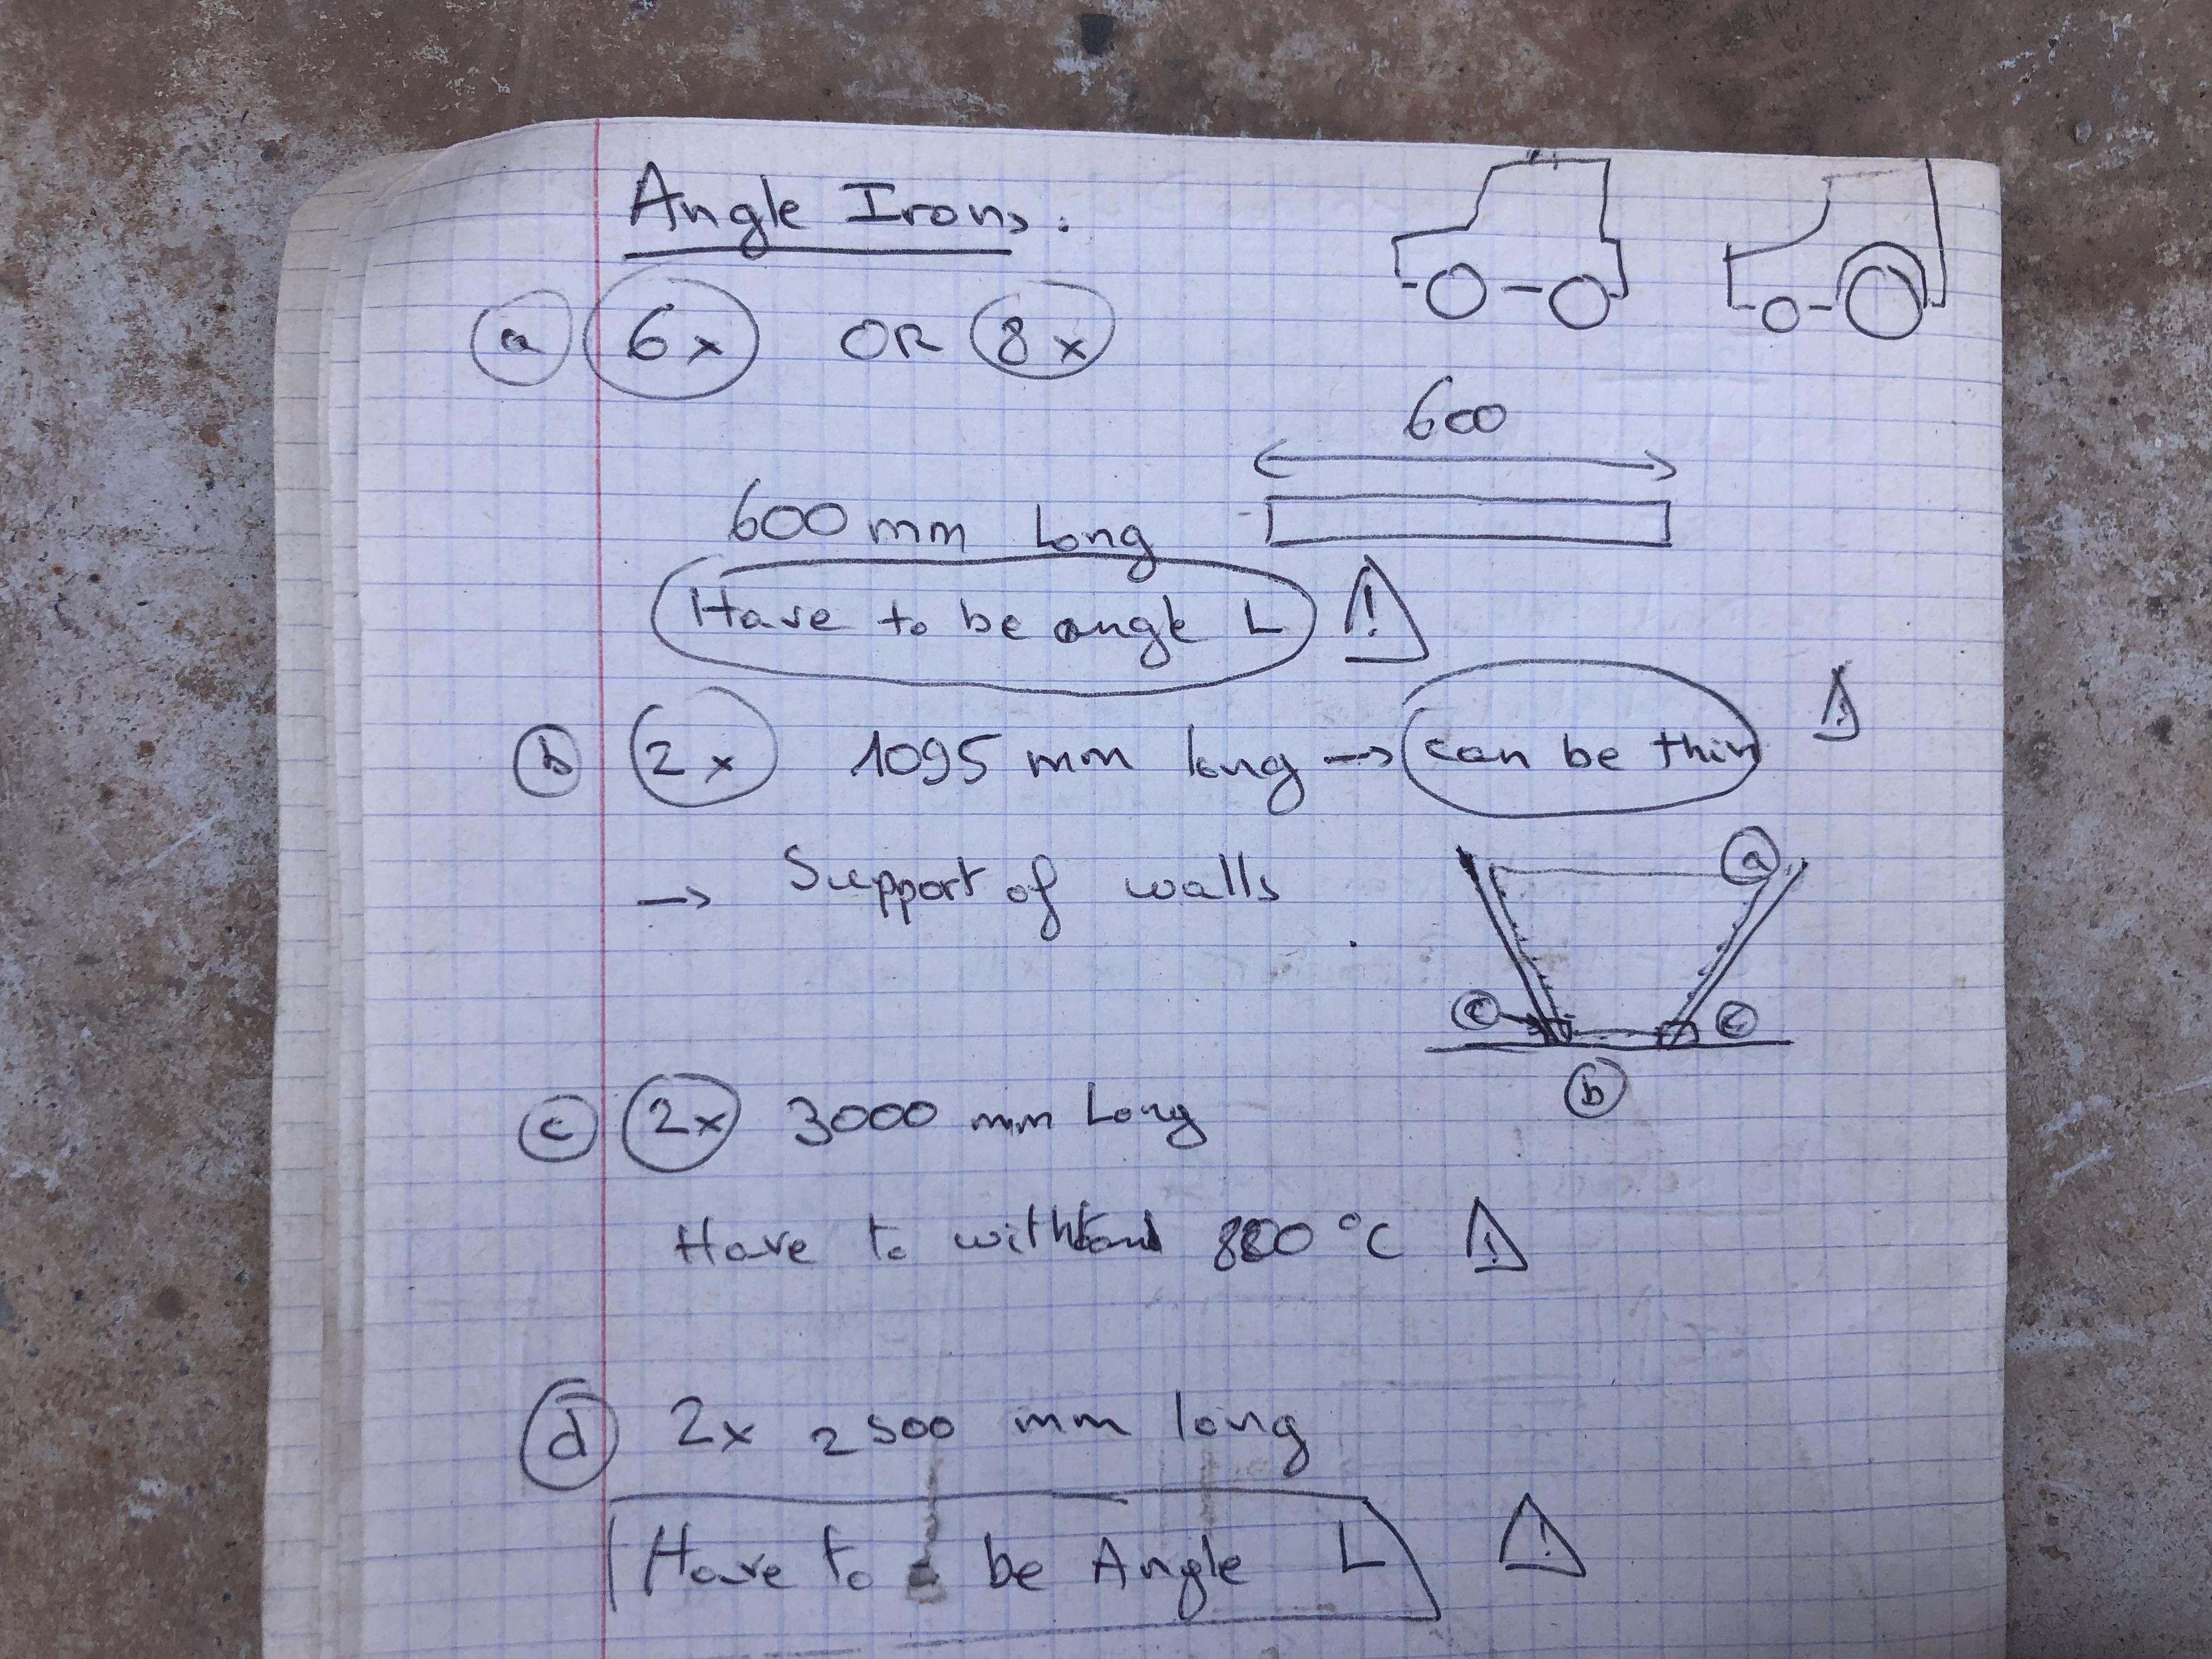 Angle Irons:
a 6x OR 8x
600
600 mm Long
Have to be angle L !
b 2x 1095 mm long → can be thin !
→ Support of walls
a
c c
b
c 2x 3000 mm Long
Have to 800 °C !
d 2x 2500 mm long
Have to be Angle L !